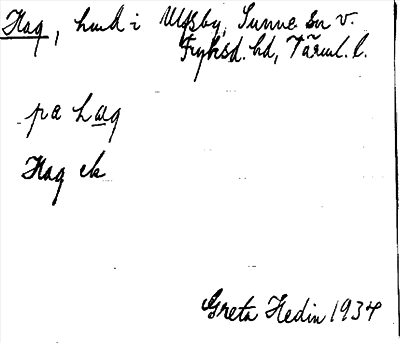 Hag, hmd i Ulfsby, Sunne sn v.
Fryksd. hd, Värml. l.
pa hag
Hag ek
Greta Hedin 1934